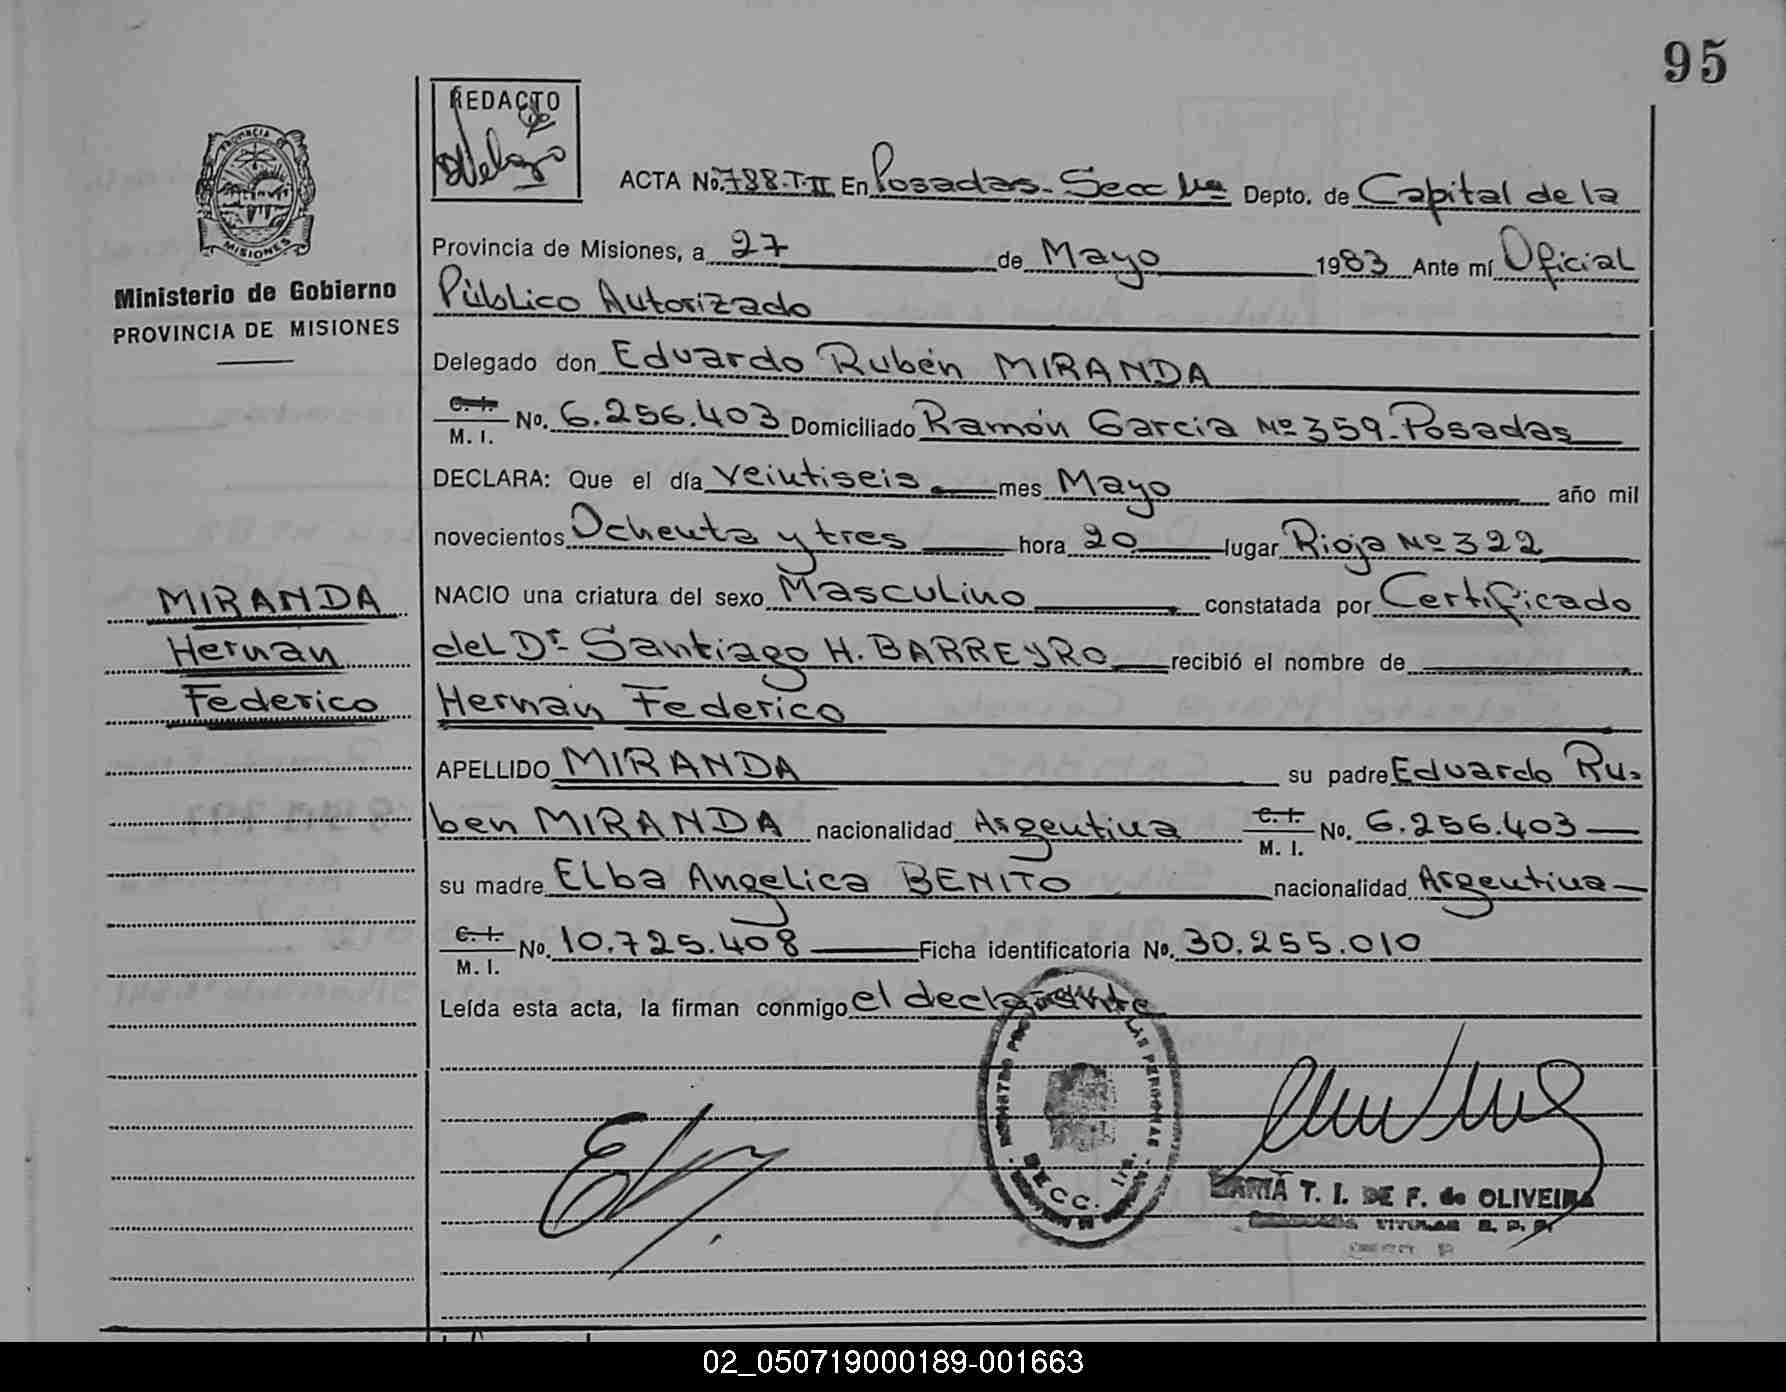 95
REDACTO
PROVINCIA DE
MISIONES
Ministerio de Gobierno
PROVINCIA DE MISIONES
ACTA No. 788-T-II En Posadas-Secc 1ra Depto. de Capital de la
Provincia de Misiones, a 27 de Mayo 1983 Ante mí Oficial
Público Autorizado
Delegado don Eduardo Rubén MIRANDA
C. I.
M. I. No. 6.256.403 Domiciliado Ramón García Nº 359-Posadas
DECLARA: Que el día veintiseis mes Mayo año mil
novecientos Ochenta y tres hora 20 lugar Rioja Nº 322
NACIO una criatura del sexo Masculino constatada por Certificado
del Dr. Santiago H. BARREYRO recibió el nombre de
Hernán Federico
APELLIDO MIRANDA su padre Eduardo Ru-
ben MIRANDA nacionalidad Argentina C. I. M. I. No. 6.256.403
su madre Elba Angélica BENITO nacionalidad Argentina
C. I.
M. I. No. 10.725.408 Ficha identificatoria No. 30.255.010
Leída esta acta, la firman conmigo el declarante
MIRANDA
Hernán
Federico
REGISTRO LAS PERSONAS
SECC. 1ra.
MARIA T. I. DE F. de OLIVEIRA
TITULAR
02_050719000189-001663